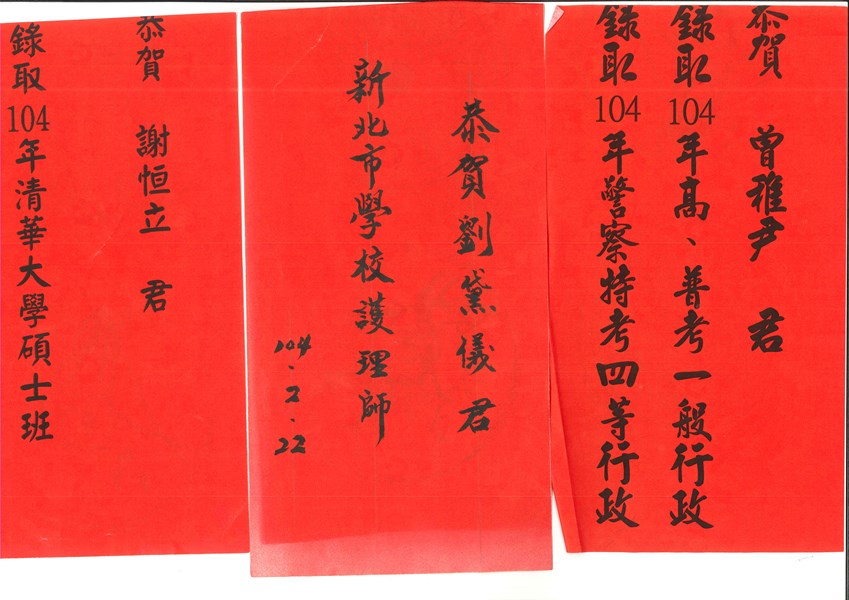 恭賀 曾雅尹 君
錄取104年高、普考一般行政
錄取104年警察特考四等行政
恭賀劉黛儀君
新北市學校護理師
104.2.22
恭賀 謝恒立 君
錄取104年清華大學碩士班